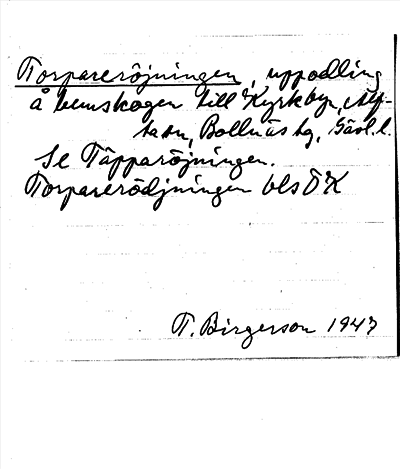 Torpareröjningen, uppodling
å hemskogen till Kyrkbyn, Alf-
ta sn, Bollnäs tg, Gävl. l.
Se Täpparöjningen.
Torparerödjningen bls ÖK
T. Birgerson 1947